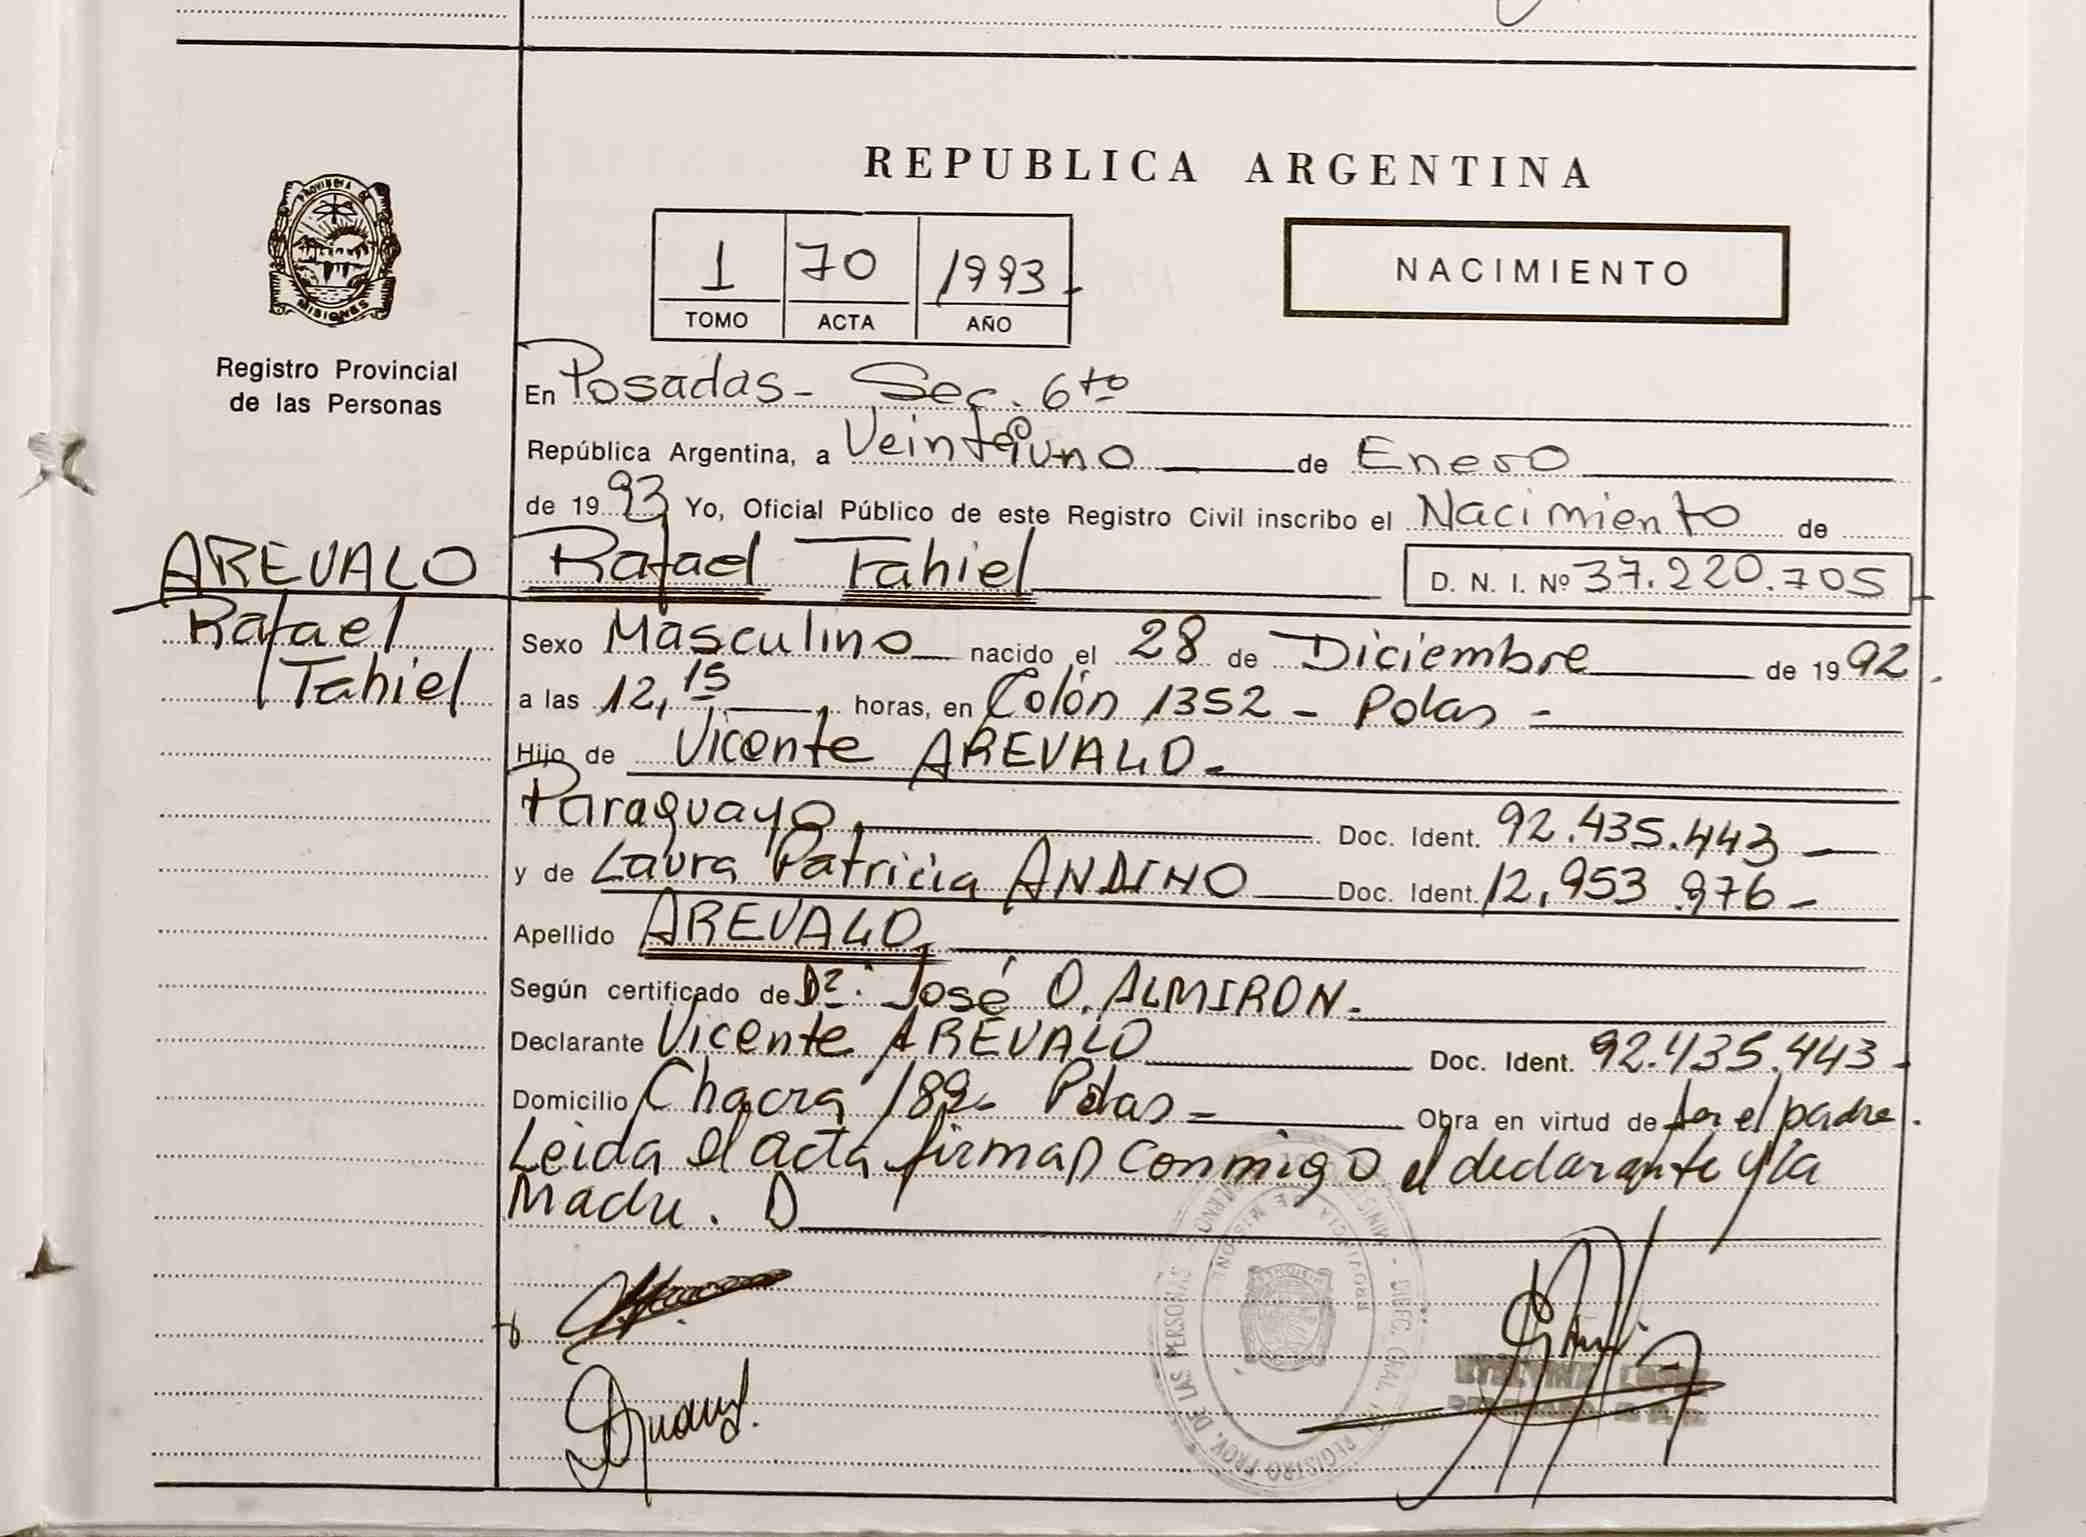 REPUBLICA ARGENTINA
1 70 1993
TOMO ACTA AÑO
NACIMIENTO
PROVINCIA DE
MISIONES
Registro Provincial
de las Personas
En Posadas - Sec. 6to
República Argentina, a Veintiuno de Enero
de 1993 Yo, Oficial Público de este Registro Civil inscribo el Nacimiento de
AREVALO
Rafael
Tahiel
Rafael Tahiel D. N. I. Nº 37.220.705
Sexo Masculino nacido el 28 de Diciembre de 1992.
a las 12,15 horas, en Colón 1352 - Pdas -
Hijo de Vicente AREVALO -
Paraguayo Doc. Ident. 92.435.443 -
y de Laura Patricia ANDINO Doc. Ident. 12,953.976 -
Apellido AREVALO
Según certificado de Dr. José O. ALMIRON -
Declarante Vicente AREVALO Doc. Ident. 92.435.443 -
Domicilio Chacra 182 - Pdas - Obra en virtud de ser el padre.
Leida el acta firman conmigo el declarante y la
Madre.
REGISTRO PROV. DE LAS PERSONAS
PROVINCIA DE MISIONES